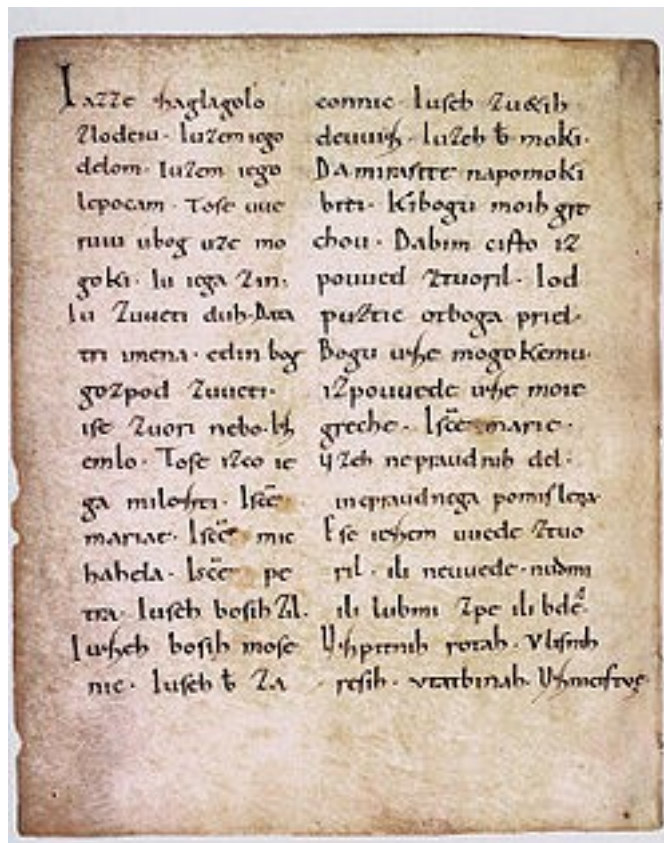 Iazze zaglagolo
zlodeiu. Iuzem iego
delom. Iuzem iego
lepocam. Tose uue
ruiu ubog uze mo
goki. Iu iega zin.
Iu zuueti duh. Data
tri imena. edin bog
gozpod zuueti.
ise zuori nebo. Iz
emlo. Tose izco ie
ga milozti. Iscē
mariae. Iscē mic
hahela. Iscē pe
tra. Iuseh bosih zil.
Iuzeh bosih mose
nic. Iuseh b za
connic. Iuseh zu&ih
deuuiz. Iuzeh b moki.
Da mi rasite napomoki
biti. Kibogu moih gre
chou. Dabim cisto iz
pouued ztuoril. Iod
puztic otboga priel.
Bogu uze mogokemu.
izpouuede uze moie
greche. Iscē marie.
uzeh nepraudnih del.
inepraudnega pomislena.
Ese iezem uuede ztuo
ril. ili neuuede. nudmi
ili lubmi zpe ili bdē.
Uzpitnih rotah. Vlisnih
resih. vtatbinah. Uznicistve.